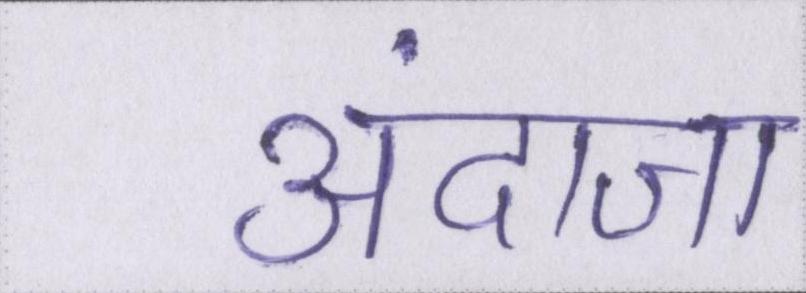 अंदाजा